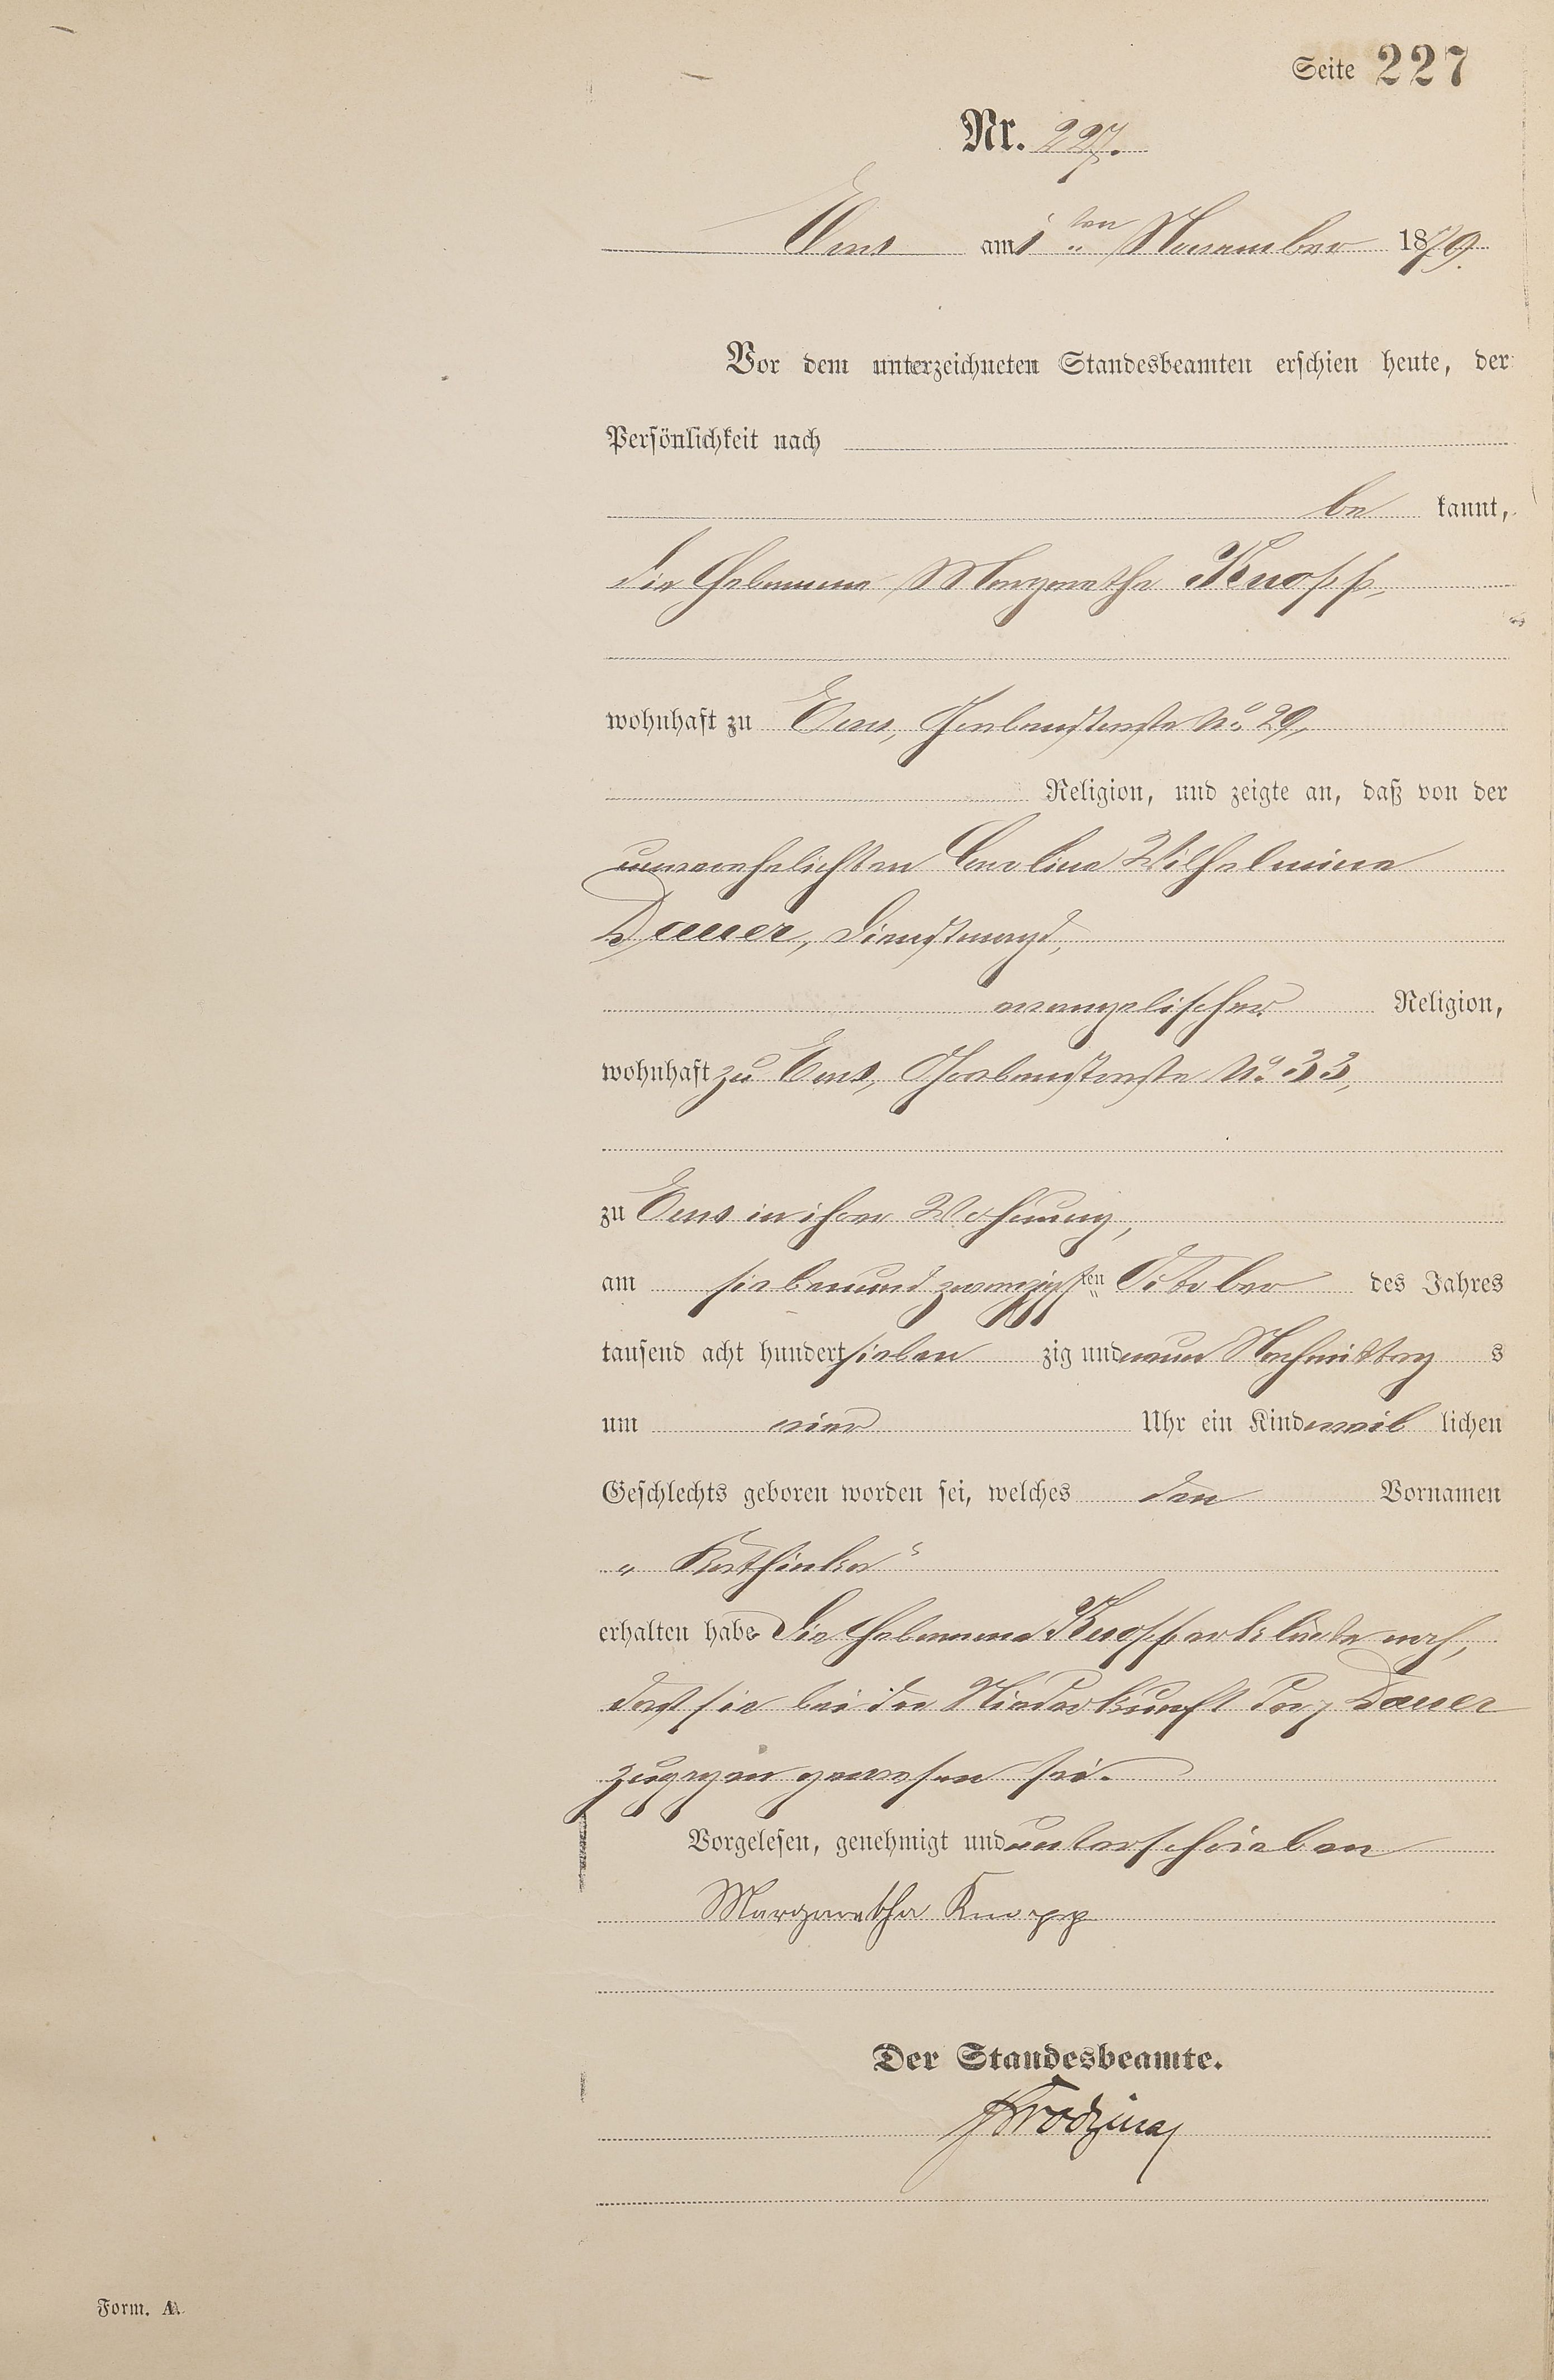 Seite 227
Nr. 227.
Ems am 1ten November 1879.
Vor dem unterzeichneten Standesbeamten erschien heute, der
Persönlichkeit nach
be kannt,
die Hebamme Margaretha Knopp,
wohnhaft zu Ems, Grabenstraße No. 29,
Religion, und zeigte an, daß von der
unverehelichten Caroline Wilhelmine
Dauer, Dienstmagd,
evangelischer Religion,
wohnhaft zu Ems, Grabenstraße No. 33,
zu Ems in ihrer Wohnung,
am siebenundzwanzigsten October des Jahres
tausend acht hundert sieben zig und neun Nachmittag s
um vier Uhr ein Kind weib lichen
Geschlechts geboren worden sei, welches den Vornamen
„Kathinka“
erhalten habe Die Hebamme Knopp erklärte noch,
daß sie bei der Niederkunft der p Dauer
zugegen gewesen sei.
Vorgelesen, genehmigt und unterschrieben
Margaretha Knopp
Der Standesbeamte.
Form. A.